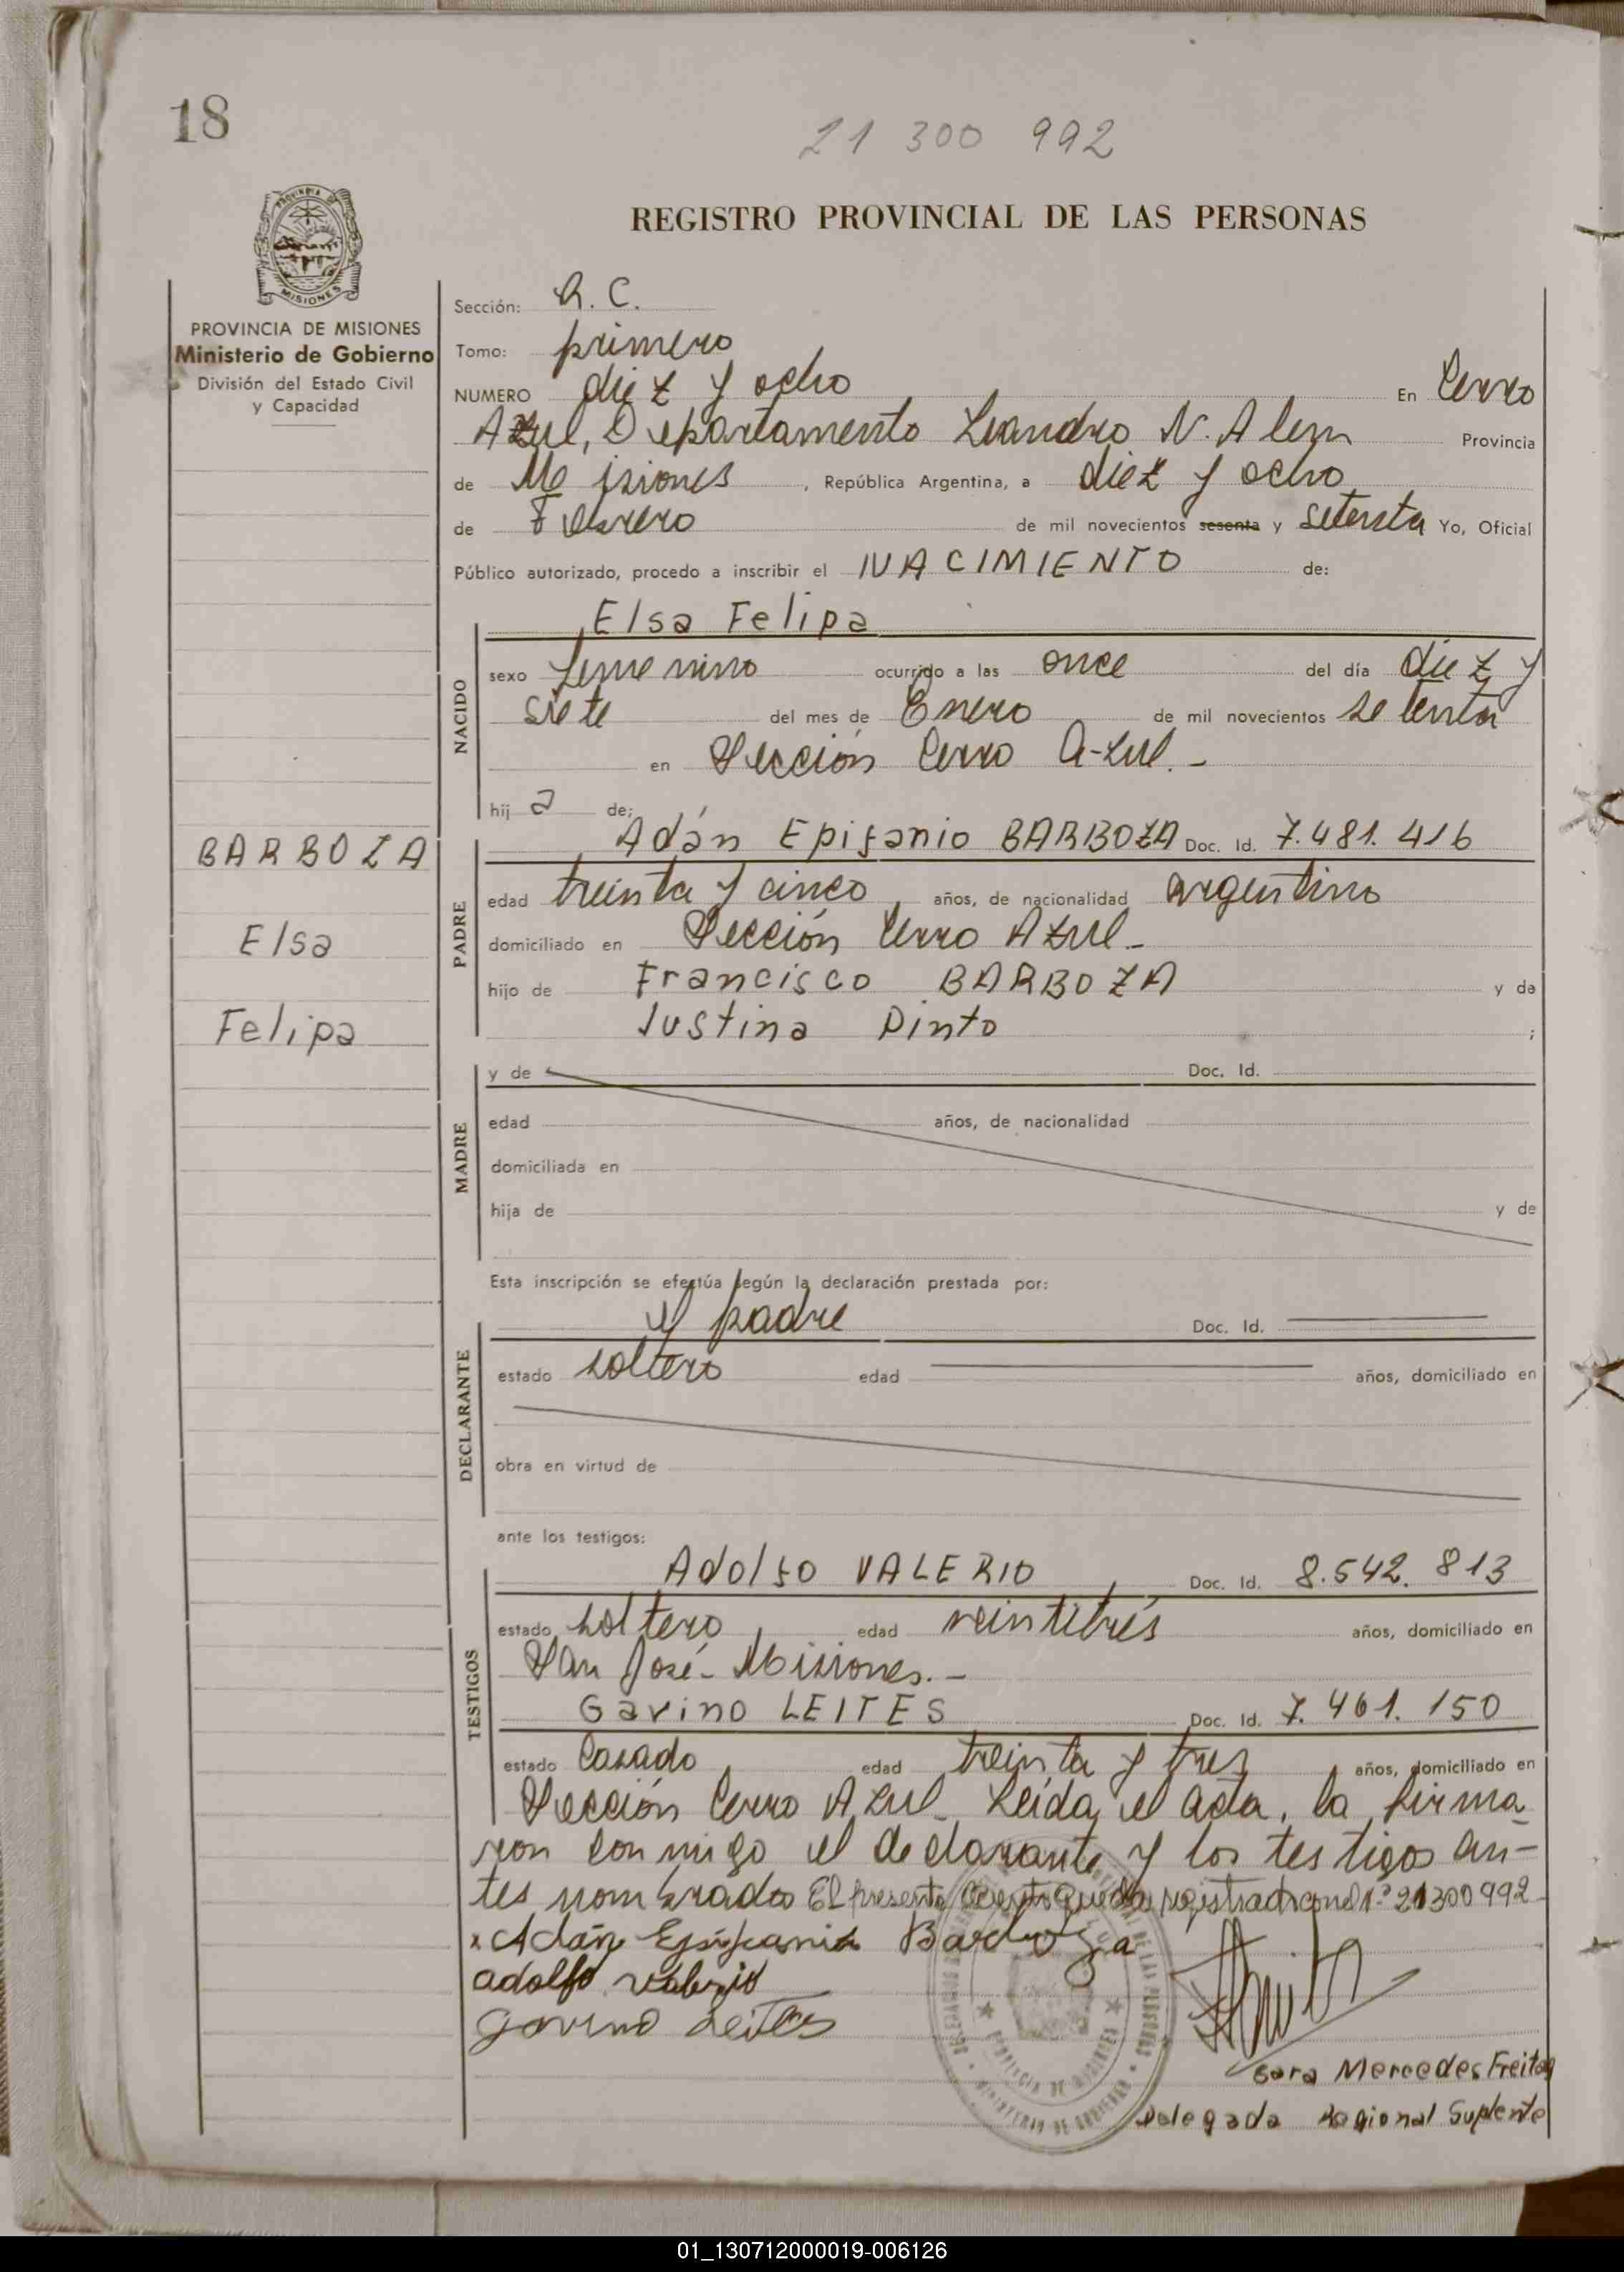 18
21 300 992
REGISTRO PROVINCIAL DE LAS PERSONAS
PROVINCIA DE MISIONES
Ministerio de Gobierno
División del Estado Civil
y Capacidad
BARBOZA
Elsa
Felipa
Sección: R. C.
Tomo: primero
NUMERO diez y ocho En Cerro
Azul, Departamento Leandro N. Alem Provincia
de Misiones, República Argentina, a diez y ocho
de Febrero de mil novecientos sesenta y setenta Yo, Oficial
Público autorizado, procedo a inscribir el NACIMIENTO de:
NACIDO
Elsa Felipa
sexo femenino ocurrido a las once del día diez y
siete del mes de Enero de mil novecientos setenta
en Sección Cerro Azul.-
hij a de:
PADRE
Adán Epifanio BARBOZA Doc. Id. 7.481.416
edad treinta y cinco años, de nacionalidad argentino
domiciliado en Sección Cerro Azul-
hijo de Francisco BARBOZA y de
Justina Pinto ;
MADRE
y de Doc. Id.
edad años, de nacionalidad
domiciliada en
hija de y de
Esta inscripción se efectúa según la declaración prestada por:
DECLARANTE
el padre Doc. Id.
estado soltero edad años, domiciliado en
obra en virtud de
ante los testigos:
TESTIGOS
Adolfo VALERIO Doc. Id. 8.542.813
estado soltero edad veintitrés años, domiciliado en
San José- Misiones.-
Gavino LEITES Doc. Id. 7.461.150
estado Casado edad treinta y tres años, domiciliado en
Sección Cerro Azul- Leída el acta, la firma
ron conmigo el declarante y los testigos an-
tes nombrados El presente queda registrado con el N.º 21300992
x Adán Epifanio Barboza
adolfo valerio
Gavino Leites
Sara Mercedes Freitas
Delegada Regional Suplente
01_130712000019-006126